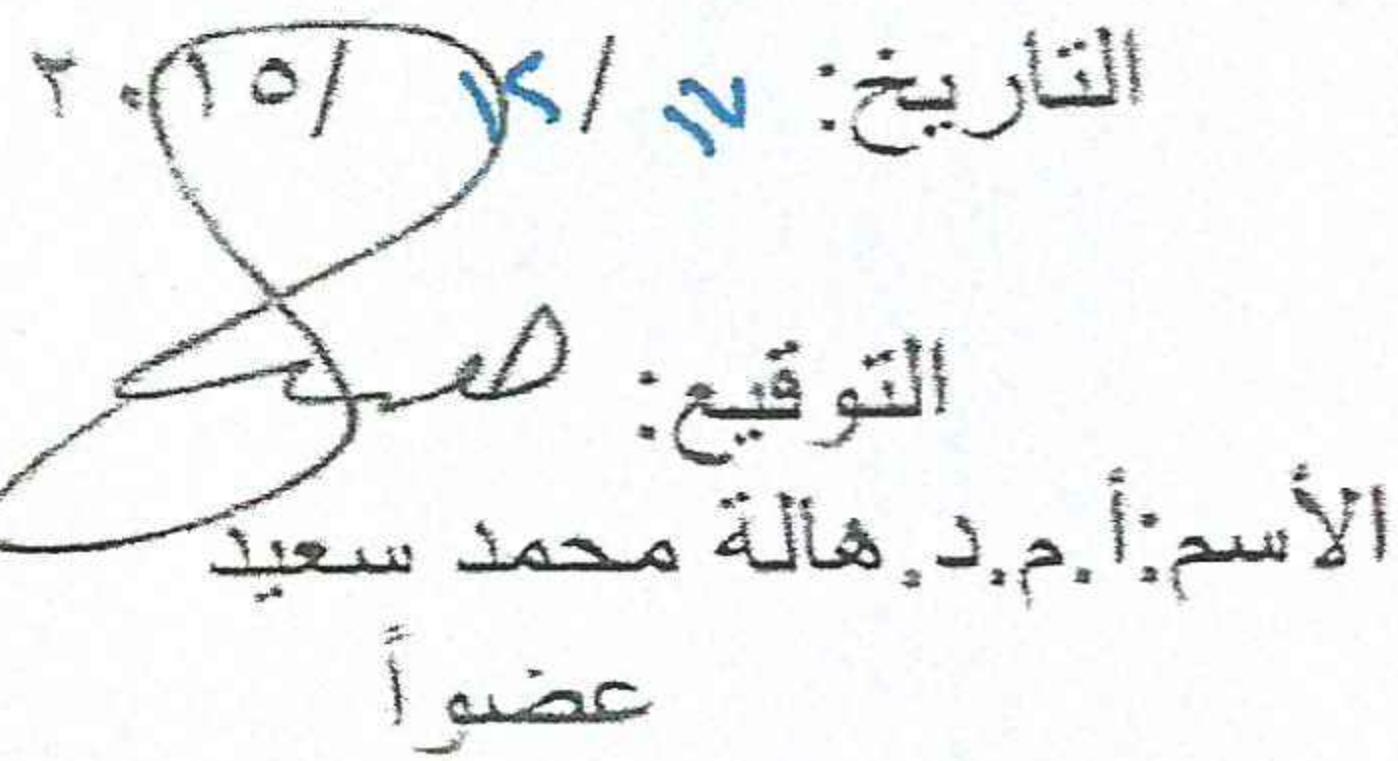 التاريخ: ١٧ / ١٢ / ٢٠١٥
التوقيع:
الأسم:أ.م.د.هالة محمد سعيد
عضواً